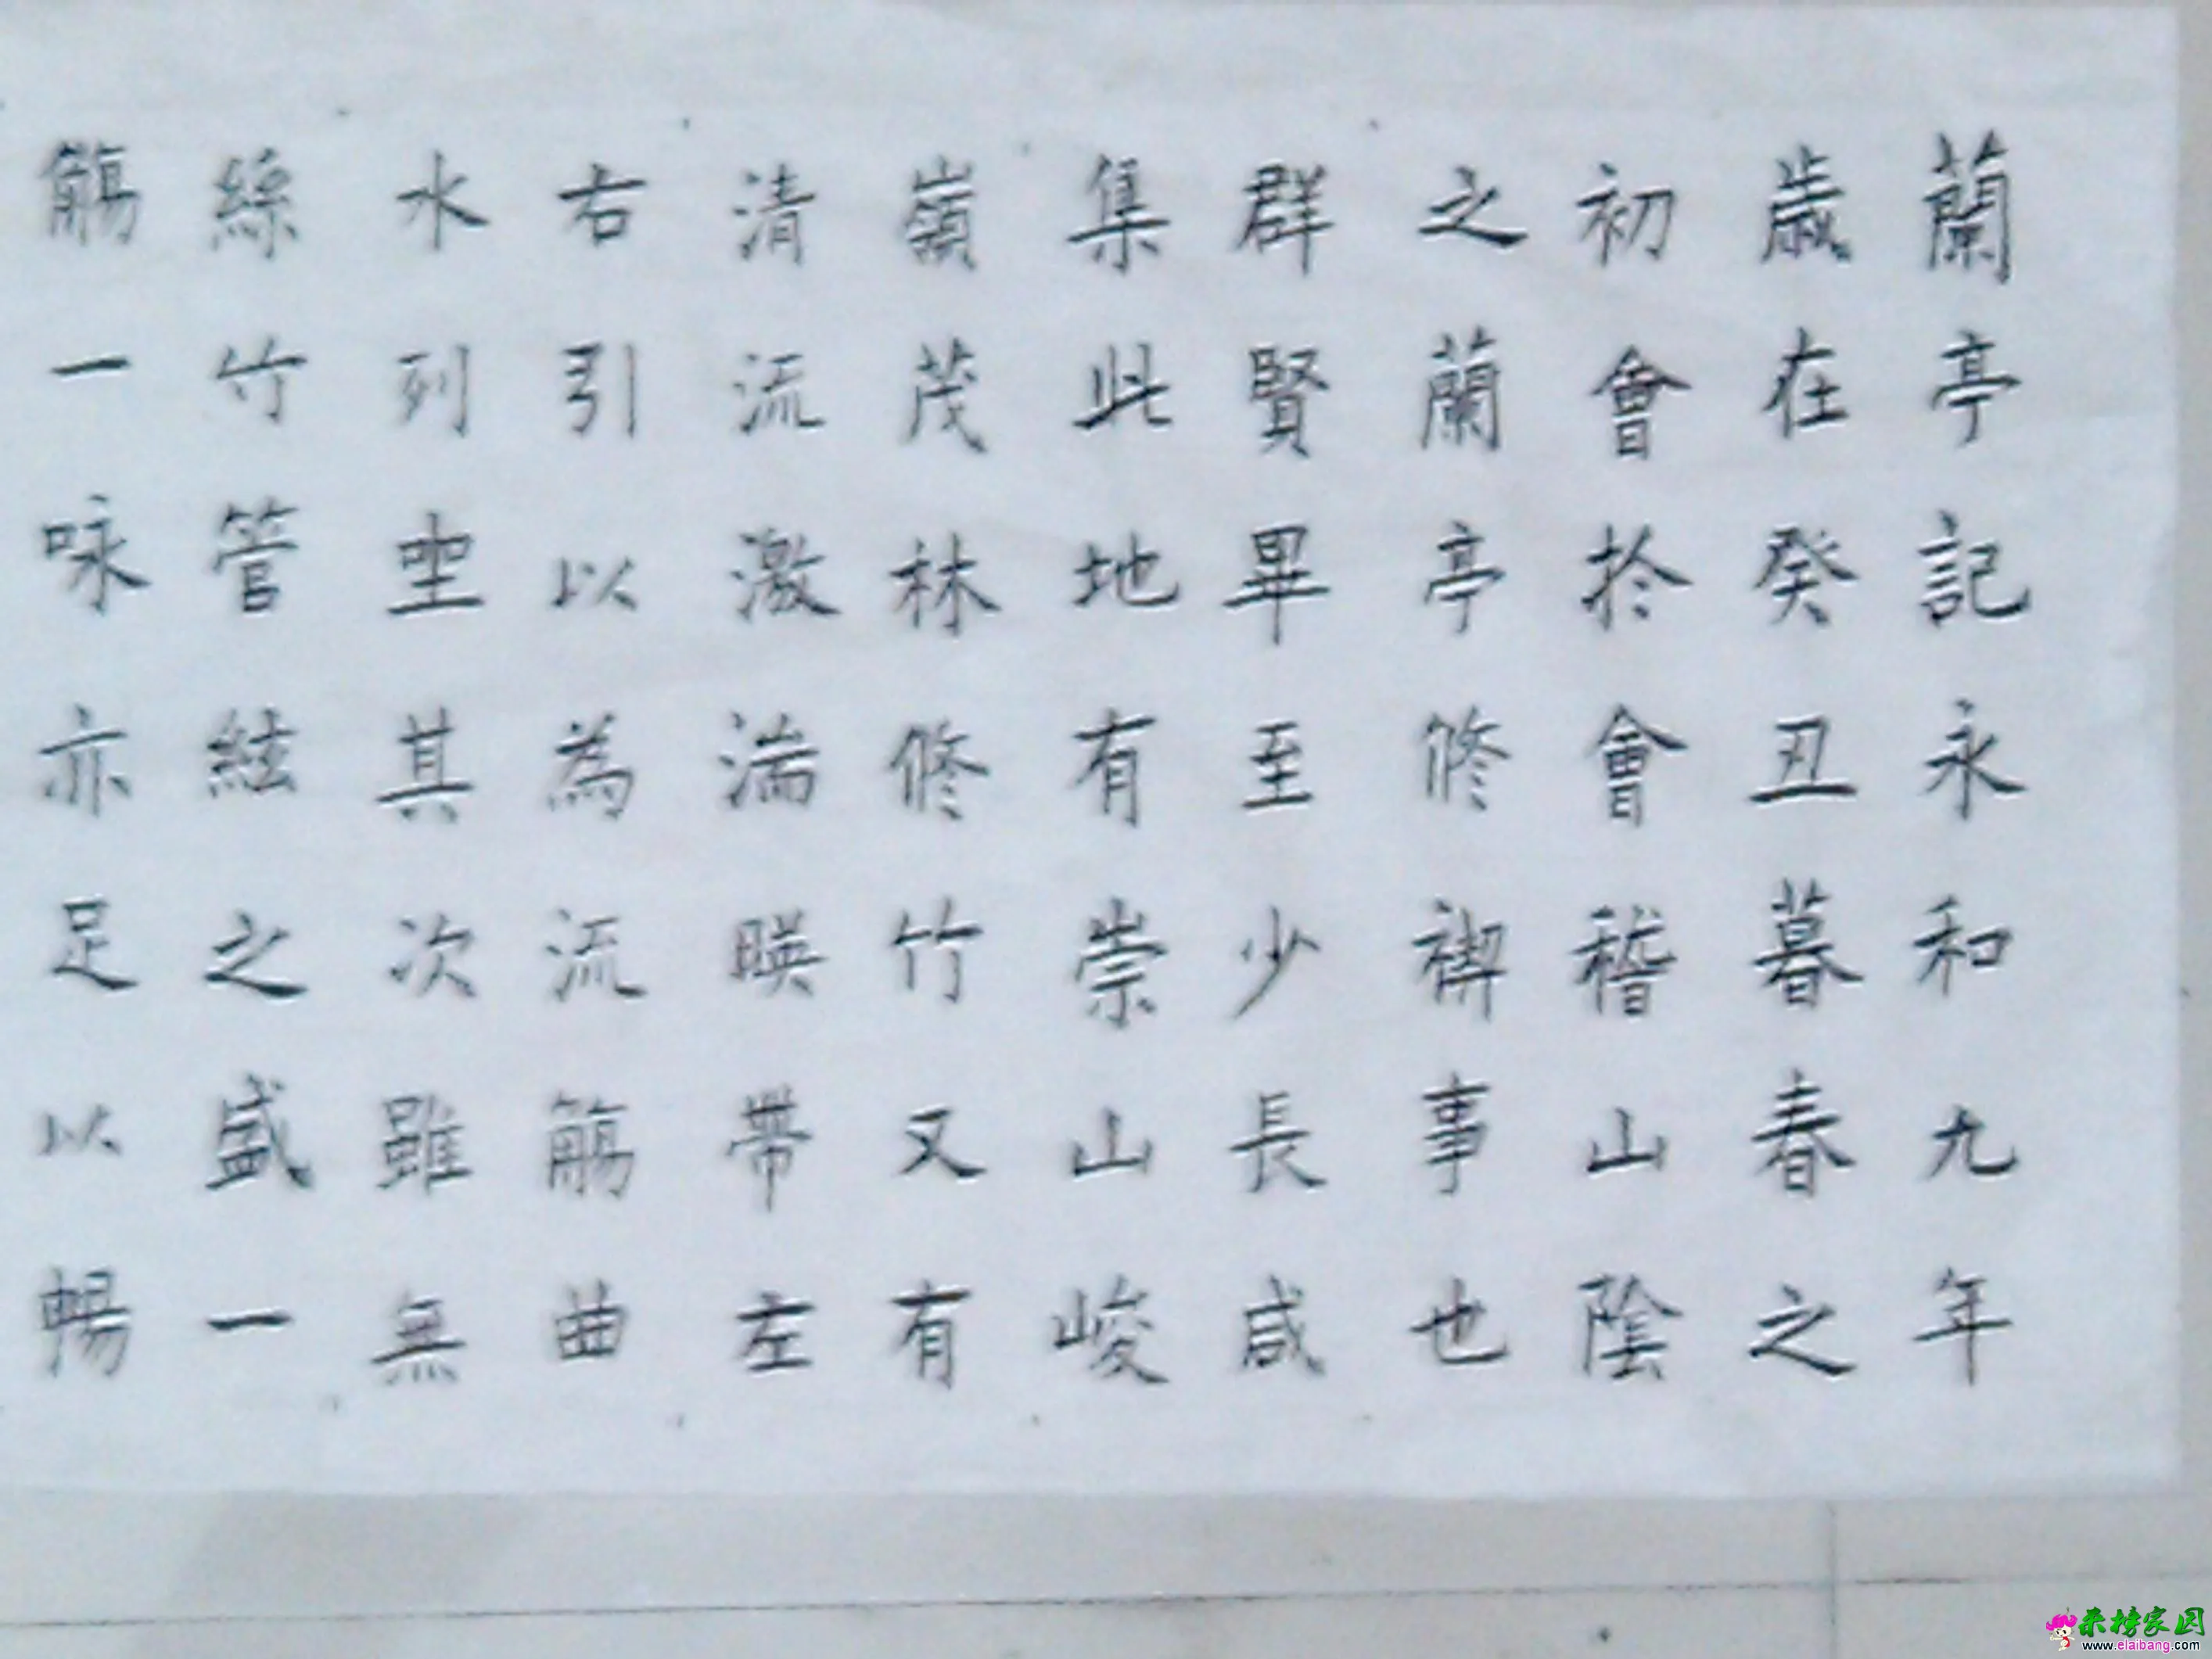 蘭亭記永和九年
歲在癸丑暮春之
初會於會稽山陰
之蘭亭修禊事也
群賢畢至少長咸
集此地有崇山峻
嶺茂林修竹又有
清流激湍暎帶左
右引以為流觴曲
水列坐其次雖無
絲竹管絃之盛一
觴一咏亦足以暢
来榜家园
www.elaibang.com